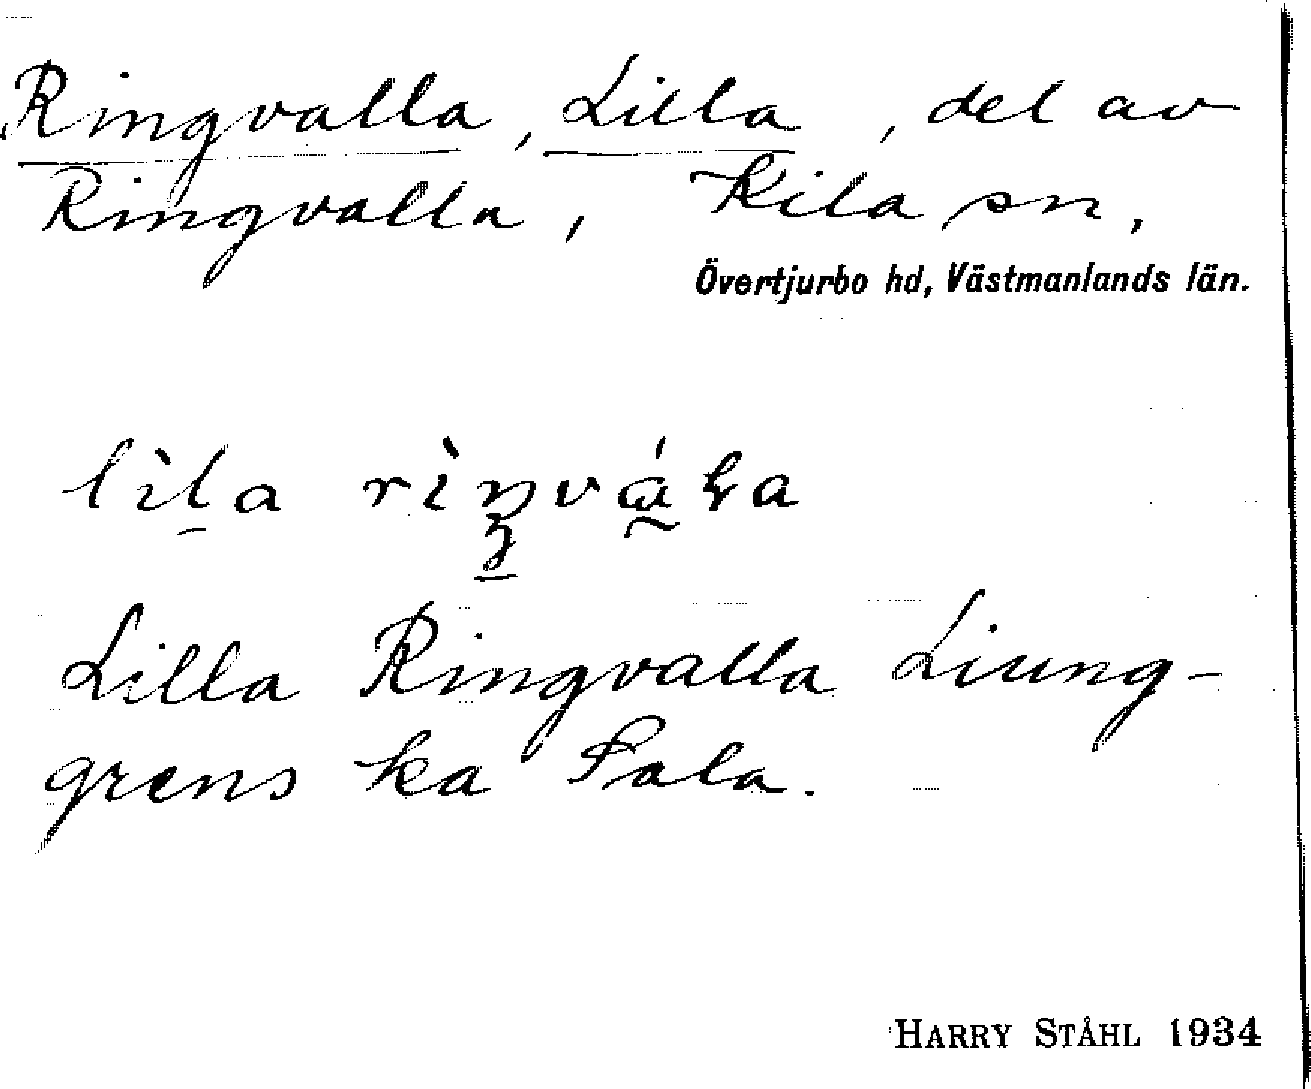 Ringvalla, Lilla, del av
Ringvalla, Kila sn,
Övertjurbo hd, Västmanlands län.
lìl̠a
Lilla Ringvalla Liung-
grens ka Sala.
HARRY STÅHL 1934